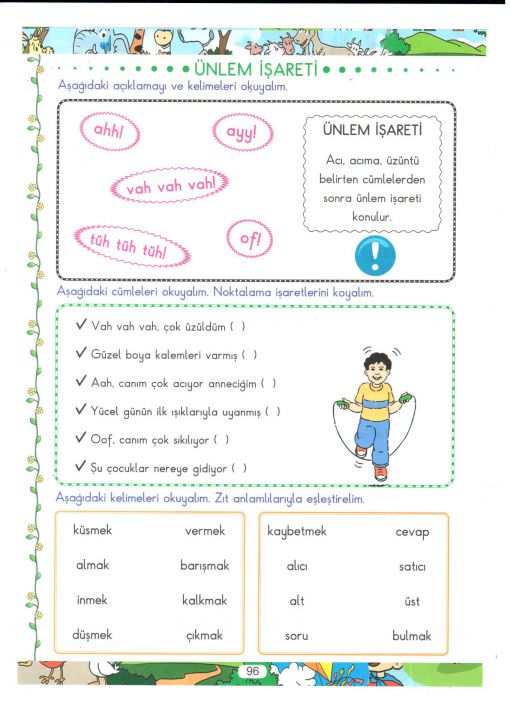 ÜNLEM İŞARETİ
Aşağıdaki açıklamayı ve kelimeleri okuyalım.
ahh!
ayy!
vah vah vah!
tüh tüh tüh!
of!
ÜNLEM İŞARETİ
Acı, acıma, üzüntü
belirten cümlelerden
sonra ünlem işareti
konulur.
!
Aşağıdaki cümleleri okuyalım. Noktalama işaretlerini koyalım.
✓ Vah vah vah, çok üzüldüm ( )
✓ Güzel boya kalemleri varmış ( )
✓ Aah, canım çok acıyor anneciğim ( )
✓ Yücel günün ilk ışıklarıyla uyanmış ( )
✓ Oof, canım çok sıkılıyor ( )
✓ Şu çocuklar nereye gidiyor ( )
Aşağıdaki kelimeleri okuyalım. Zıt anlamlılarıyla eşleştirelim.
küsmek vermek
almak barışmak
inmek kalkmak
düşmek çıkmak
kaybetmek cevap
alıcı satıcı
alt üst
soru bulmak
96